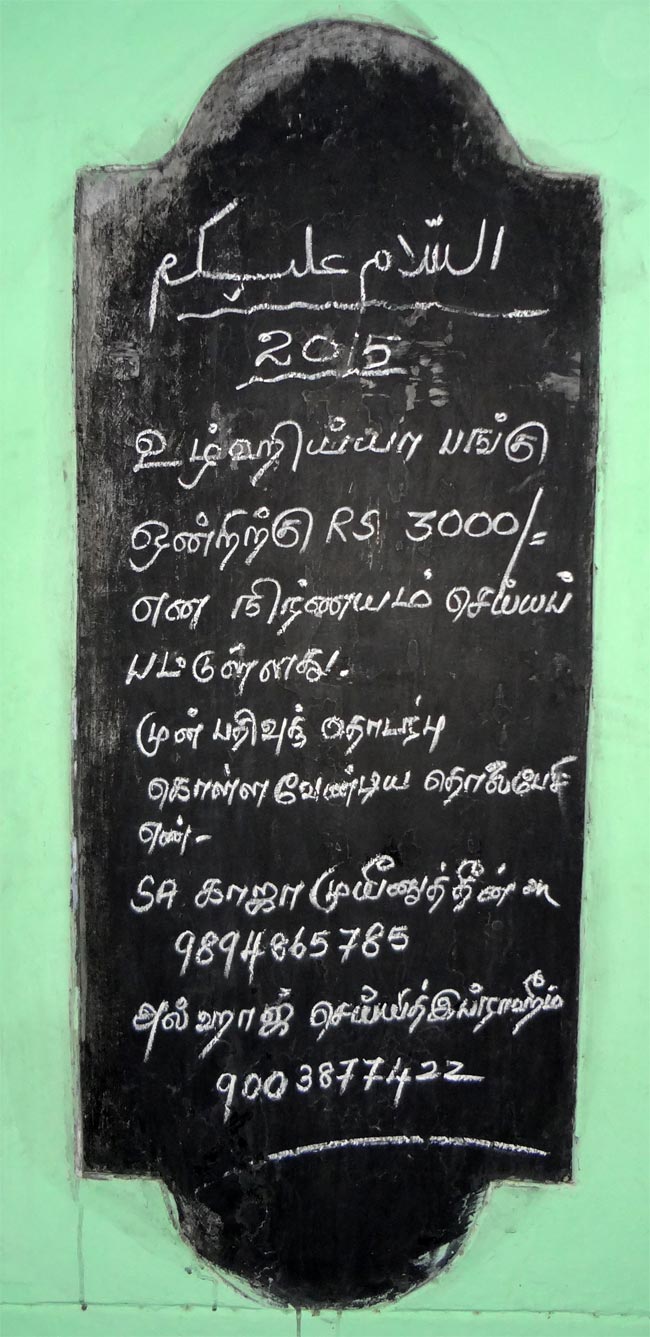 السلام عليكم
2015
உழ்ஹிய்யா பங்கு
ஒன்றிற்கு RS 3000/=
என நிர்ணயம் செய்யப்
பட்டுள்ளது.
முன் பதிவுக் தொடர்பு
கொள்ள வேண்டிய தொலைபேசி
எண்-
SA காஜா முயீனுத்தீன்
9894865785
அல் ஹாஜ் செய்யித் இப்ராஹீம்
9003877422